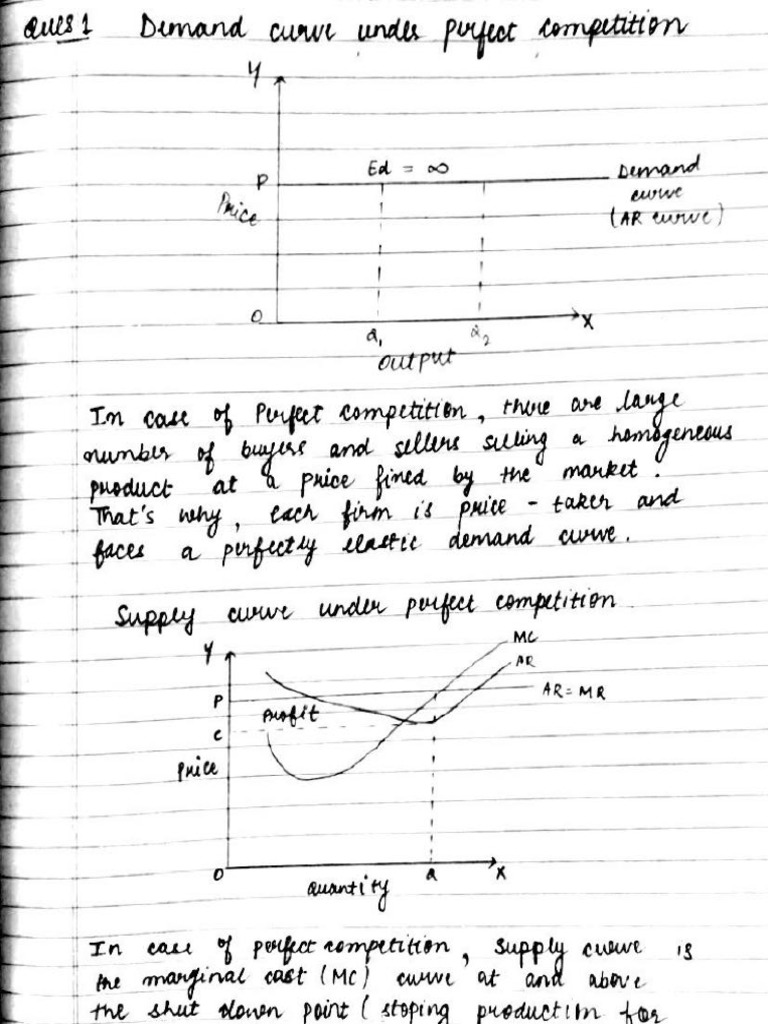 Ques 1 Demand curve under perfect competition
Y
Ed = ∞
P
Demand
curve
(AR curve)
Price
O
X
Q1
Q2
Output
In case of Perfect competition, there are large
number of buyers and sellers selling a homogeneous
product at a price fined by the market.
That's why, each firm is price - taker and
faces a perfectly elastic demand curve.
Supply curve under perfect competition
Y
MC
AR
P
AR = MR
Profit
C
Price
O
Q
X
Quantity
In case of perfect competition, supply curve is
the marginal cast (MC) curve at and above
the shut down point ( stoping production for